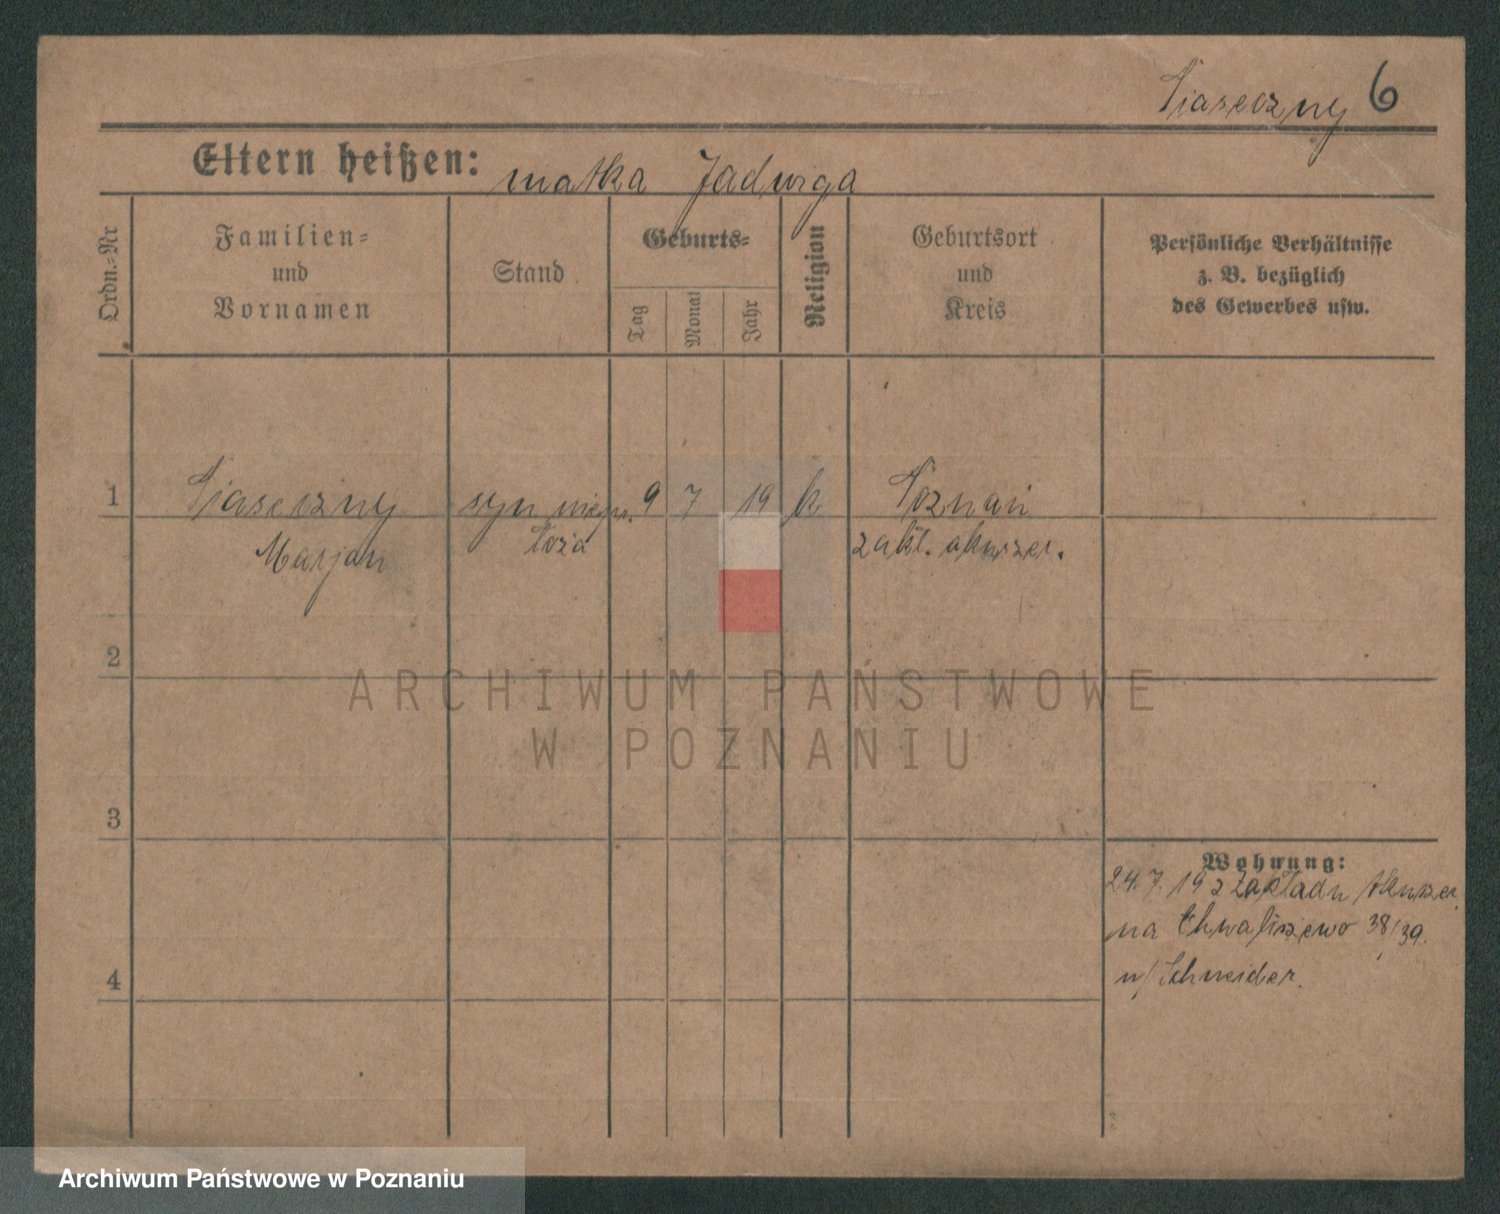 Piaseczny 6
Eltern heißen: matka Jadwiga
Ordn.-Nr
Familien-
und
Vornamen
Stand
Geburts-
Tag
Monat
Jahr
Religion
Geburtsort
und
Kreis
Persönliche Verhältnisse
z. B. bezüglich
des Gewerbes usw.
1 Piaseczny syn niepr. 9 7 19 k Poznań
Marjan łoża zakł. akuszer.
2
3
4
Wohnung:
24.7.19 z zakładu Akuszer.
na Chwaliszewo 38/39.
u/ Schneider.
ARCHIWUM PAŃSTWOWE
W POZNANIU
Archiwum Państwowe w Poznaniu